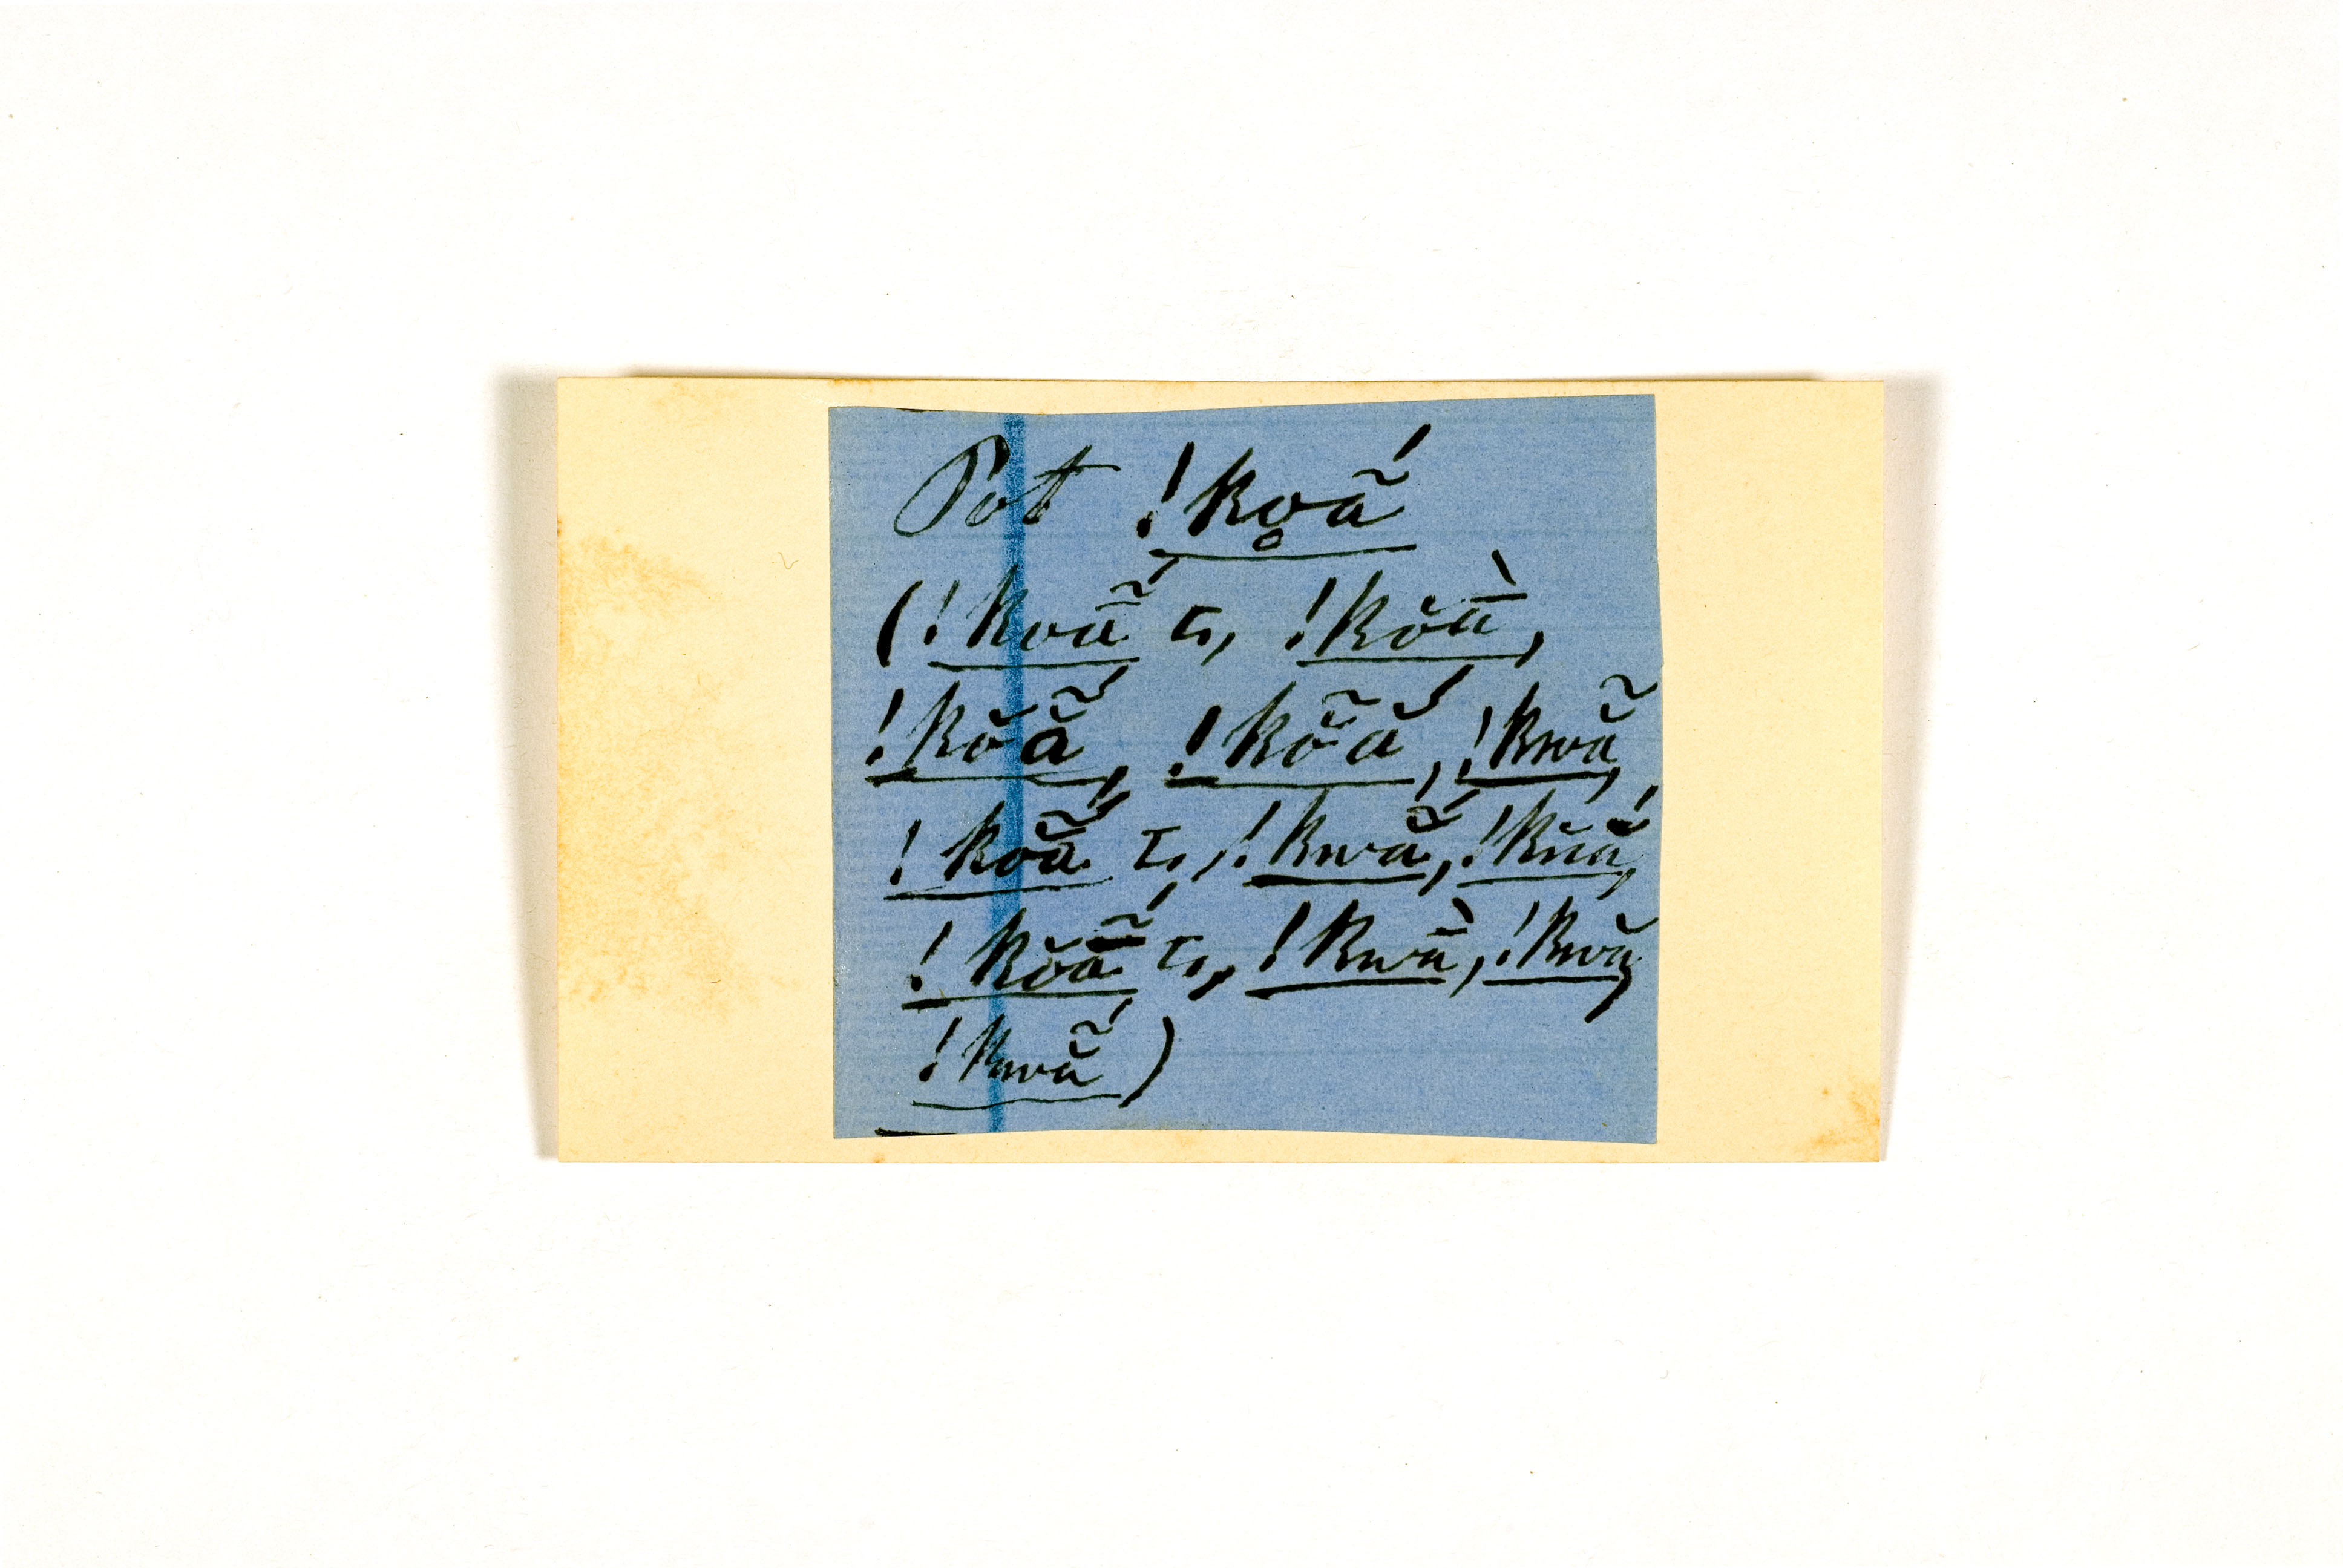 Pot !ko̥ã́
(!koã̄́ τ, !kŏā̀,
!kŏã̆́, !kõ̆ắ, !kwã̆,
!koã̆́ τ, !kwã̆́, !kŭã́,
!kŏã̄́ τ, !kwā̀, !kwă,
!kwã̆́)